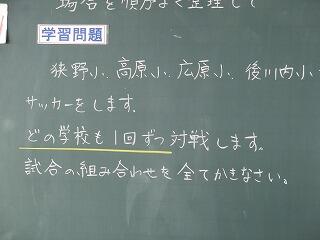 場合を順序よく整理して
学習問題
狭野小、高原小、広原小、後川内小
サッカーをします。
どの学校も1回ずつ対戦します。
試合の組み合わせを全てかきなさい。